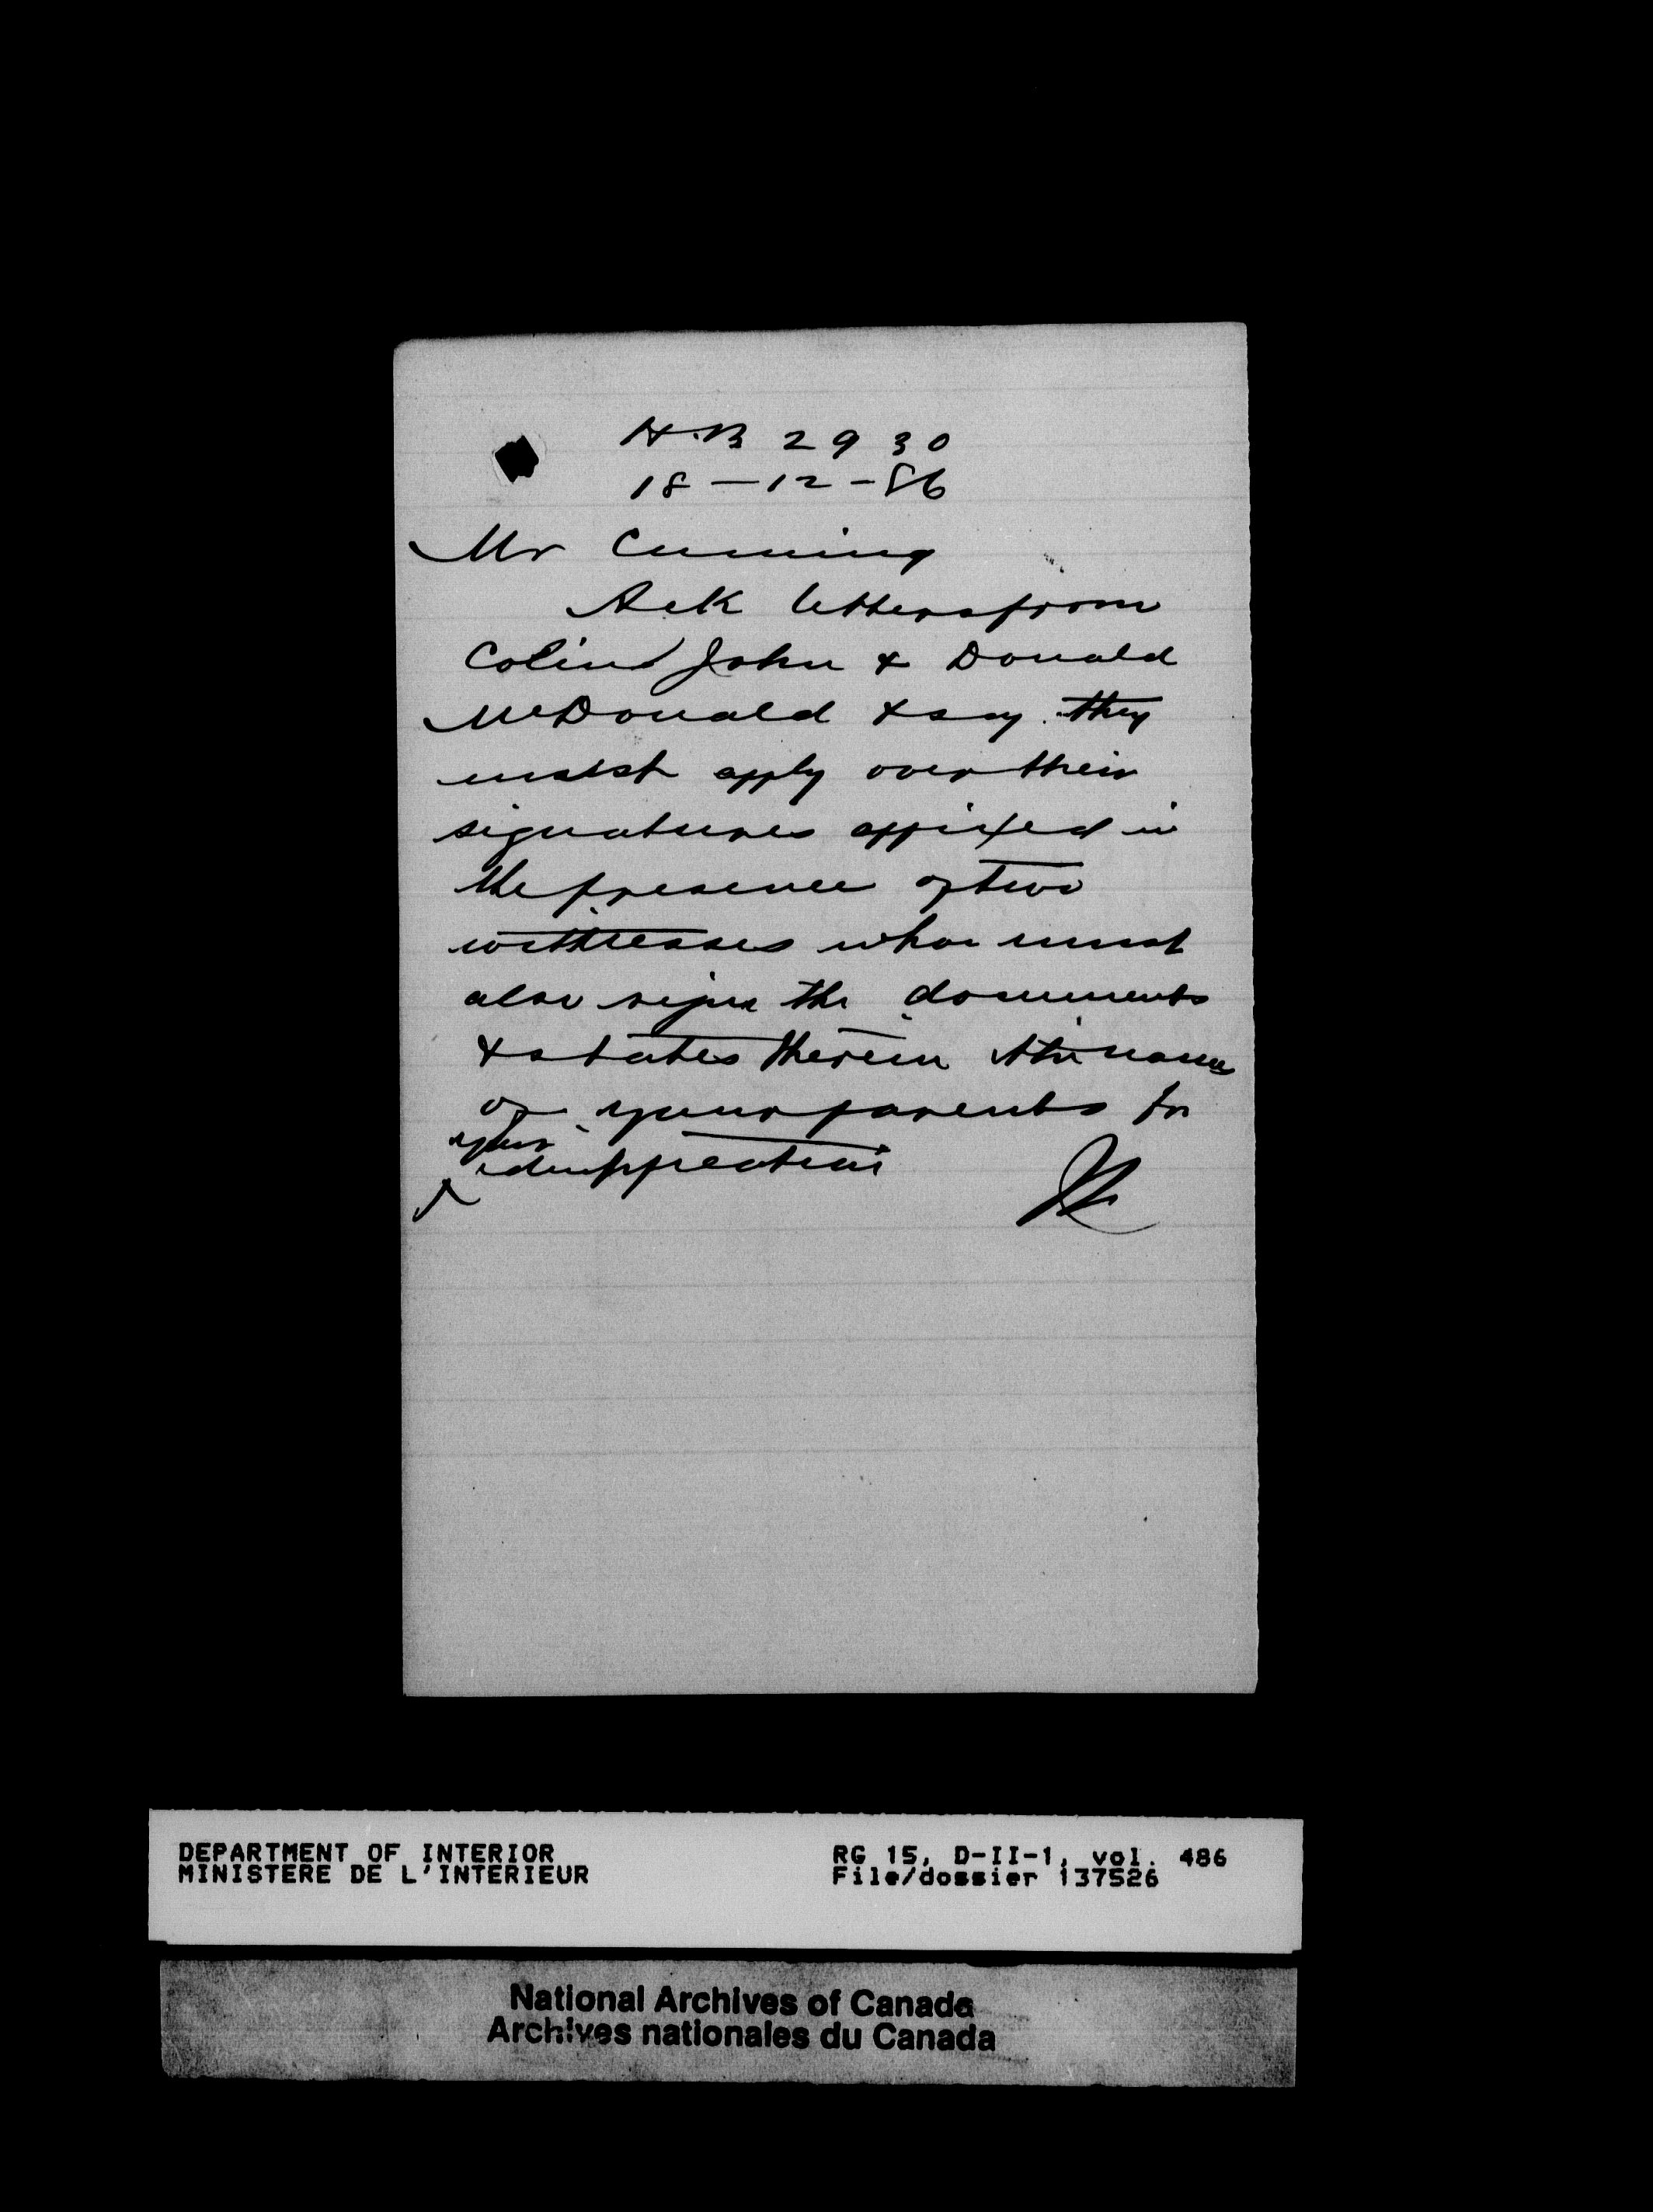 H.B 2930
18-12-86
Mr Cumming
Ack letters from
Colin John & Donald
McDonald & say they
must apply over their
signatures affixed in
the presence of two
witnesses who must
also sign the documents
& states therein the names
of your parents for
your identification
DEPARTMENT OF INTERIOR
MINISTERE DE L'INTERIEUR
RG 15, D-II-1, vol. 486
File/dossier 137526
National Archives of Canada
Archives nationales du Canada